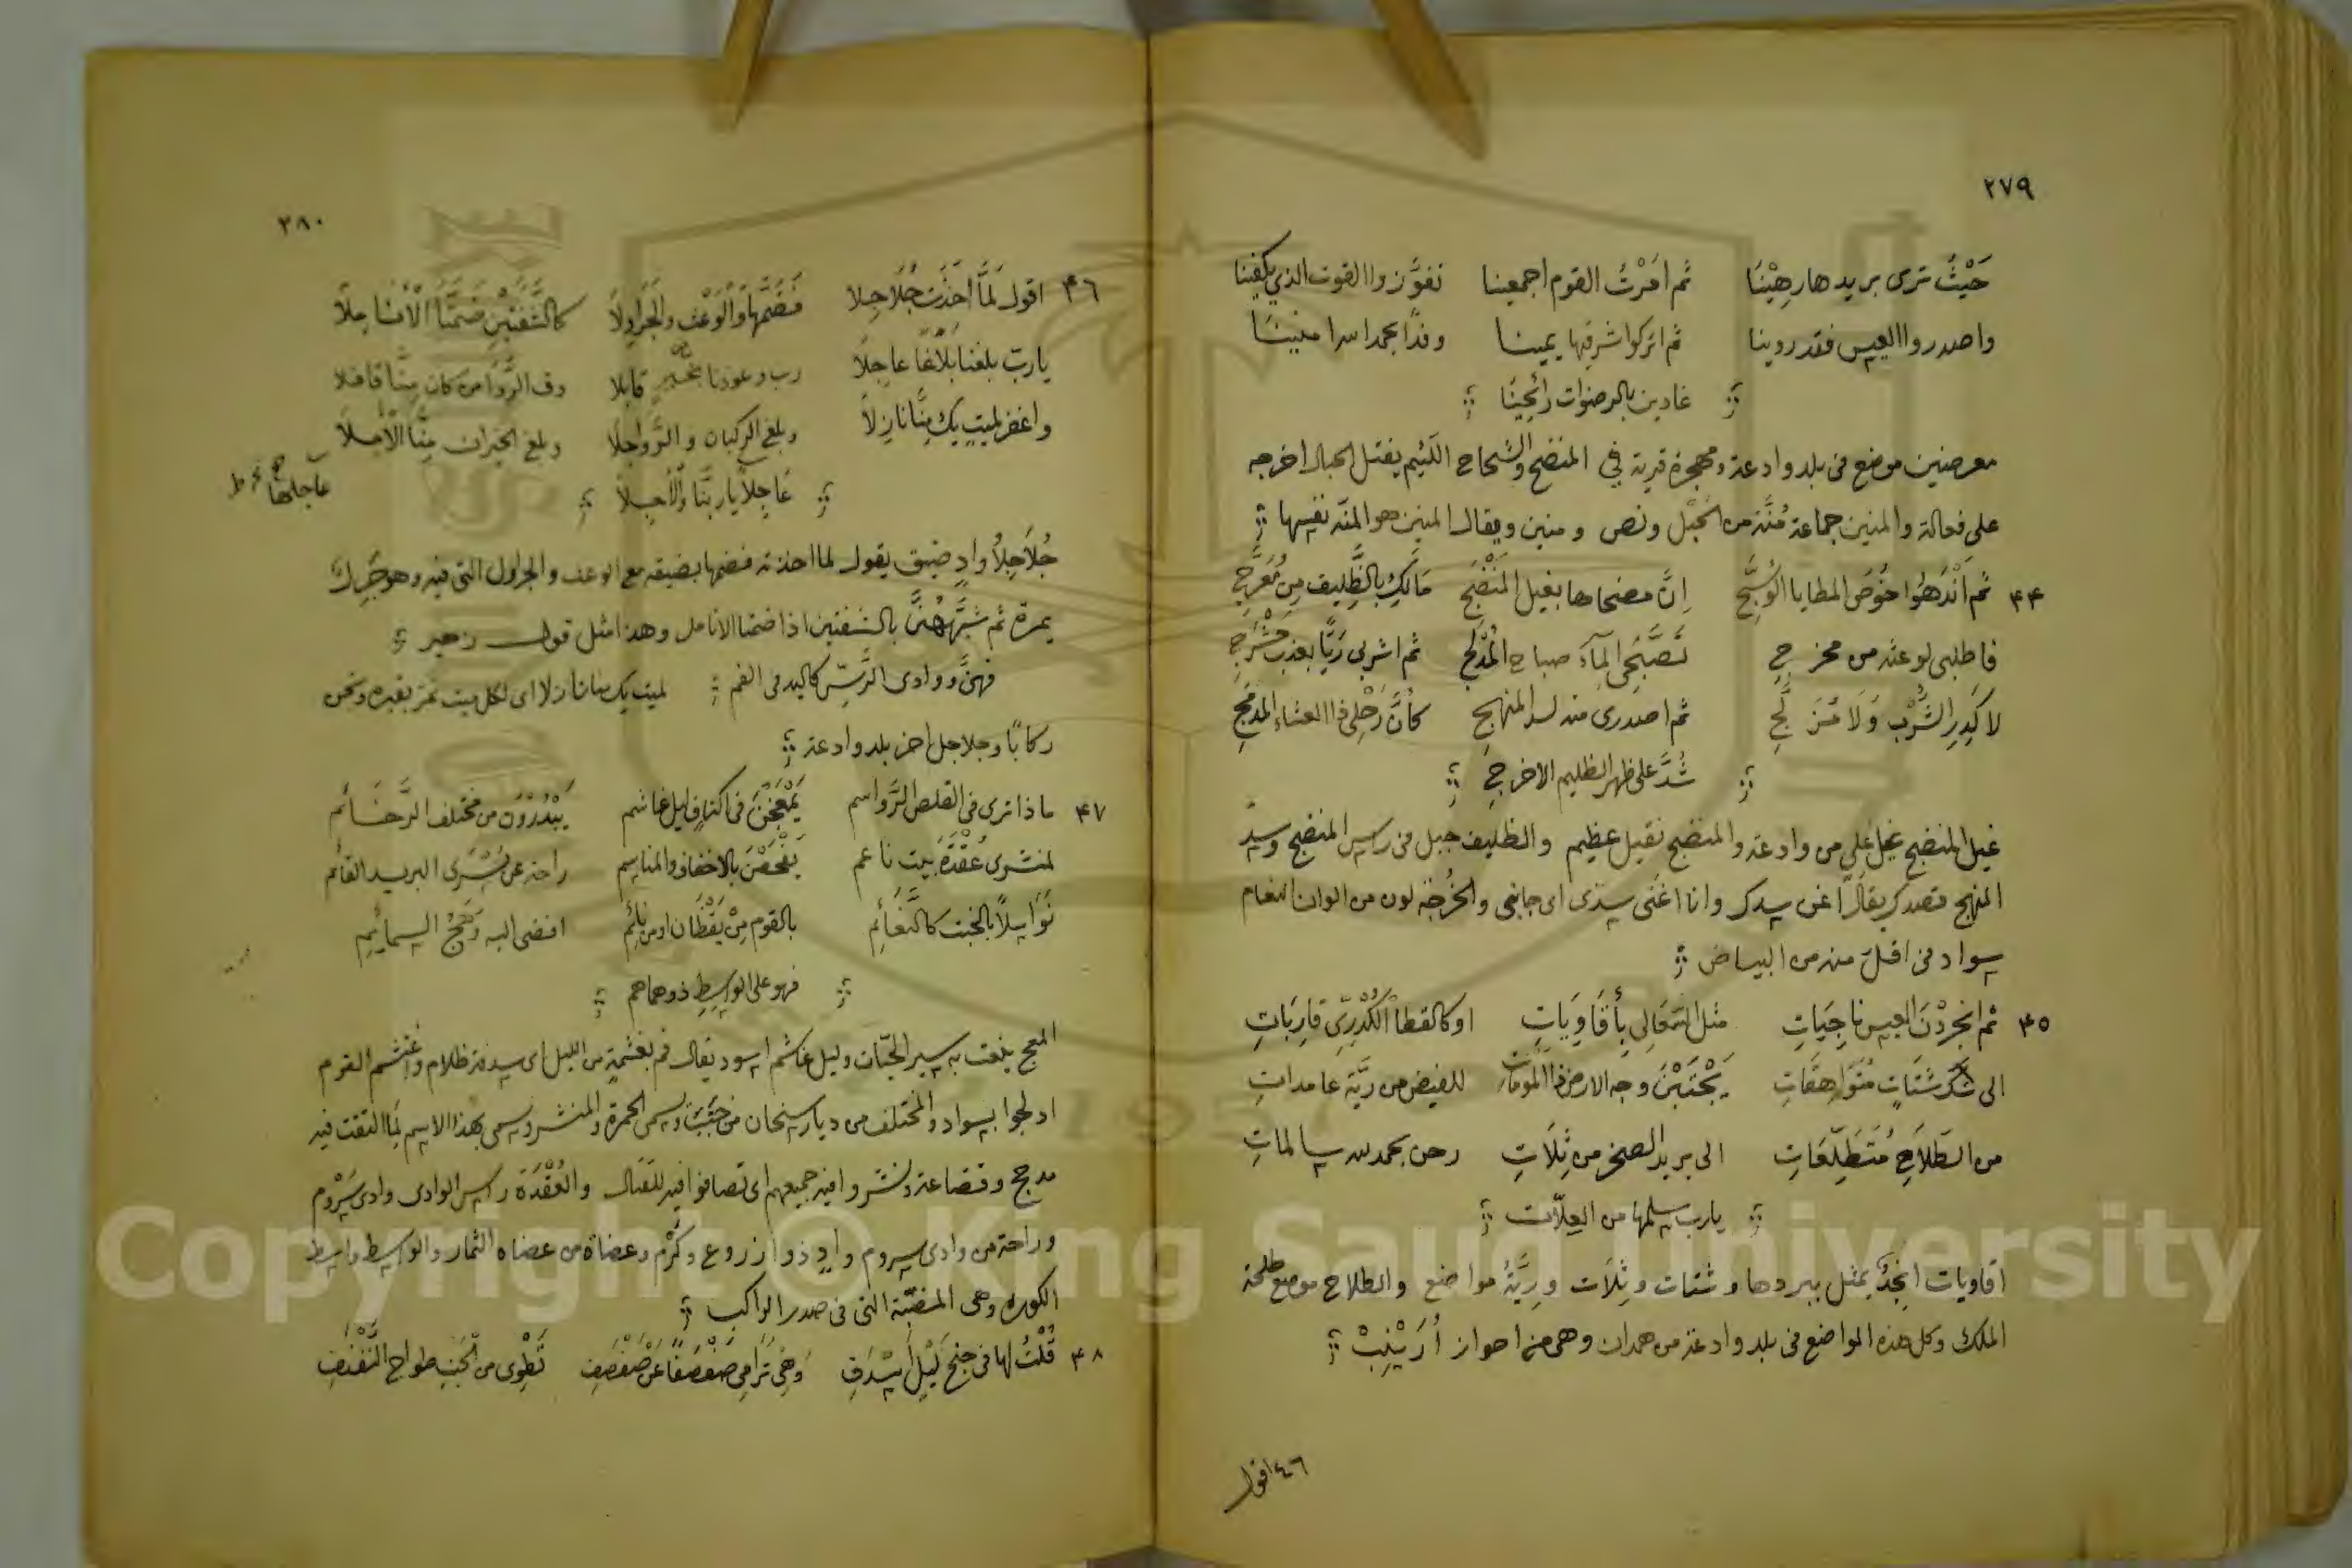 ٢٧٩
حَيْثُ ترى بريدها رهِيْنَا ثم امَرْتُ القوم اجمعينا تفوَّزوا القوت الذي يكفينا
واصدروا العيس فقد روينا ثم اتركوا شرقيها يمينا وفدًا بحمد الله امنينا
غادين بالرضوات رائحينا
معرضين موضع فى بلد وادعة ومهجرة قرية في المنضج والشحاح الكثيم يفتل الحبال اخرجه
على فعالة والمنين جماعة مُنَّة من الحبل ونص ومنين ويقال المنين هو المنّة نفسها
٤٤ ثم اَنْدَهُوا خُوْصَ المطايا الوُسَّجِ اِنَّ مضحاها بغيل المنْضَجِ مَالَكِ بالظَّليف من مُعَرَّجِ
فاطلبى لو عنه من مخرجِ تَصَبَّحِى الماَءَ صباح المُدْلجِ ثم اشربى رَيًّا بعذب حَشْرَجِ
لا كَدِرِ الشُّرْب وَلَا مُزَلَّجِ ثم اصدرى منه لسد المنهجِ كأنَّ رَحْلِى ذا الغشاء المدمَجِ
شُدَّ على ظهر الظليم الاخرجِ
غيل المنضج غيل على من وادعة والمنضج نقيل عظيم والظليف جبل فى راس المنضج وسدّ
المنهج قصدك يقال اغن سدك وانا اغنى سدّى اى جانبى والخُرجة لون من الوان النعام
سواد فى اقل منه من البياض
٤٥ ثم انجردْنَ العيس ناجيَاتِ مثل السَعَالى بأقَاوِيَاتِ او كالقطا الكُدْرِىّ قارِبَاتِ
الى شتاتٍ مُتَوَاهِقَاتِ يَجْتَبْنَ وجه الارض ذا الموماتِ للفيض من ريَّة عامداتِ
من الطَلَاحِ مُتَطَلِّعَاتِ الى بريد الصخر من ثِلَاتِ وهن بحمد الله سالماتِ
يارب سلمها من العِلَّات
اقاويات انجُدٌ بمثل ببردها وشتات وثِلَات ورِيَّةُ مواضع والطلاح موضع طلحة
الملك وكل هذه المواضع فى بلد وادعة من همدان وهى من احواز أُرَيْنِبْ
٤٦ اقول
٢٨٠
٤٦ اقول لمَّا أخَذَتْ جُلَاجِلا فَضَمَّهَا وَالْوَعْث والجَرَاوِلَا كالشَّفَتَيْن ضَمَّتَا الأنَامِلَا
يارب بلغنا بَلَاغًا عاجِلَا رب وعودنا بخير قابلا وف الرَّوَا من كان مِنَّا قافلا
واغفر لميتٍ يك مِنَّا نازِلَا وبلغ الركبان والرَّوَاجِلَا وبلغ الجيران مِنَّا الآمِلَا
عَاجِلًا يا ربَّنَا والآجِلَا
عاجلها
جُلَاجِلُ وادٍ ضيق يقول لما اخذته فضمها بضيقه مع الوعث والجراول التى فيه وهو جَرِلٌ
بمرة ثم شبَّهَهُنَّ بالشفتين اذا ضمتا الانامل وهذا مثل قول زهير
فهنّ ووادى الرَّسّ كاليد فى الفم لميت يك منا نازلا اى لكل ميت نمر بقبره ونحن
ركابًا وجلاجل اخر بلد وادعة
٤٧ ماذا ترى فى القلص الرَّواسم يَمْعَجْنَ فى اكناف ليل غاشم يَبْدُرْوَن من مختلف الرَّخائم
لمنشرى عُقْدَةَ بيت ناعم يَفْحَصْنَ بالاخفاف والمناسم راحة عن يُسْرَى البريد القائم
نَوَاسِلًا بالخبت كالنَّعَائِمِ بالقوم مِنْ يَقْظَان او من نائِمِ افضى اليه وَهَجُ السمائِمِ
فهو على الواسِطِ ذو هماهم
المعج يلغت به سير الحيّات وليل غاشم اسود يقال قم بغشمةٍ من الليل اى سدفة ظلام واغتشم القوم
ادلجوا بسواد والمختلف من ديار سنحان من جَنْب ويسمى الحمرة والمنشر ويسمى بهذا الاسم لمَا التقت فيه
مدحج وقضاعة ونشروا فيه جميعهم اى تصافوا فيه للقتال والعُقْدَة راس الوادى وادى سَرْوم
وراحة من وادى سروم وادٍ ذو ازروع وكَرْم وعضاة من عضاه الثمار والواسط واسط
الكور وهى المنصّبة التى فى صدر الراكب
٤٨ قُلْتُ لها فى جنح لَيْل أسْدَفِ وَهْىَ تَرَامَى صَفْصَفًا عن صَفْصَفِ تَطْوِى من الخَبْتِ طواح النَّفْنَفِ